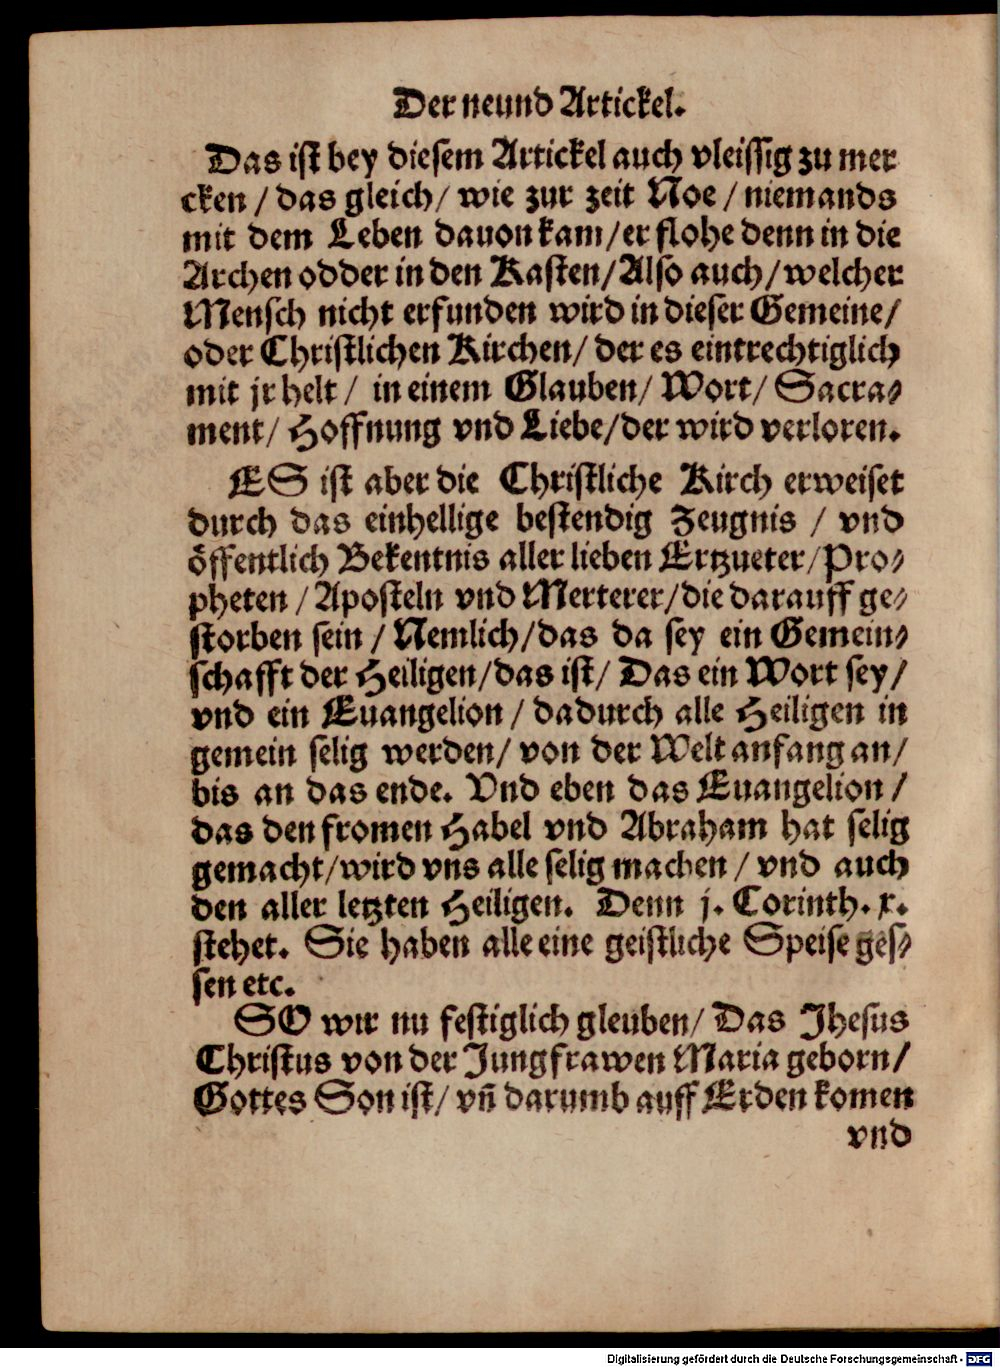 Der neund Artickel.
Das ist bey diesem Artickel auch vleissig zu mer
cken / das gleich / wie zur zeit Noe / niemands
mit dem Leben dauon kam / er flohe denn in die
Archen odder in den Kasten / Also auch / welcher
Mensch nicht erfunden wird in dieser Gemeine /
oder Christlichen Kirchen / der es eintrechtiglich
mit jr helt / in einem Glauben / Wort / Sacra⸗
ment / Hoffnung vnd Liebe / der wird verloren.
ES ist aber die Christliche Kirch erweiset
durch das einhellige bestendig Zeugnis / vnd
öffentlich Bekentnis aller lieben Ertzueter / Pro⸗
pheten / Aposteln vnd Merterer / die darauff ge⸗
storben sein / Nemlich / das da sey ein Gemein⸗
schafft der Heiligen / das ist / Das ein Wort sey /
vnd ein Euangelion / dadurch alle Heiligen in
gemein selig werden / von der Welt anfang an /
bis an das ende. Vnd eben das Euangelion /
das den fromen Habel vnd Abraham hat selig
gemacht / wird vns alle selig machen / vnd auch
den aller letzten Heiligen. Denn j. Corinth. x.
stehet. Sie haben alle eine geistliche Speise ges⸗
sen etc.
SO wir nu festiglich gleuben / Das Jhesus
Christus von der Jungfrawen Maria geborn /
Gottes Son ist / vñ darumb auff Erden komen
vnd
Digitalisierung gefördert durch die Deutsche Forschungsgemeinschaft - DFG